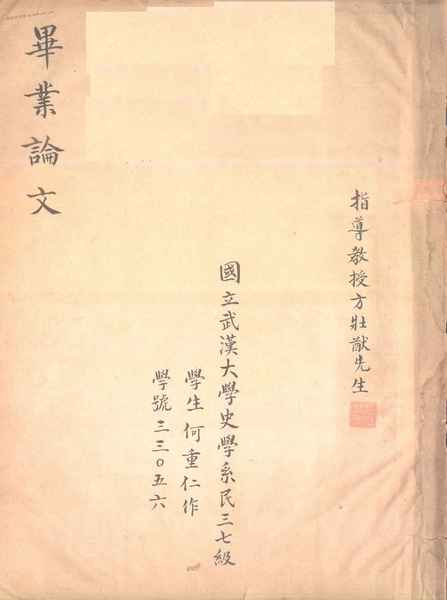 指導教授方壯猷先生
國立武漢大學史學系民三七級
學生何重仁作
學號三三〇五六
畢業論文